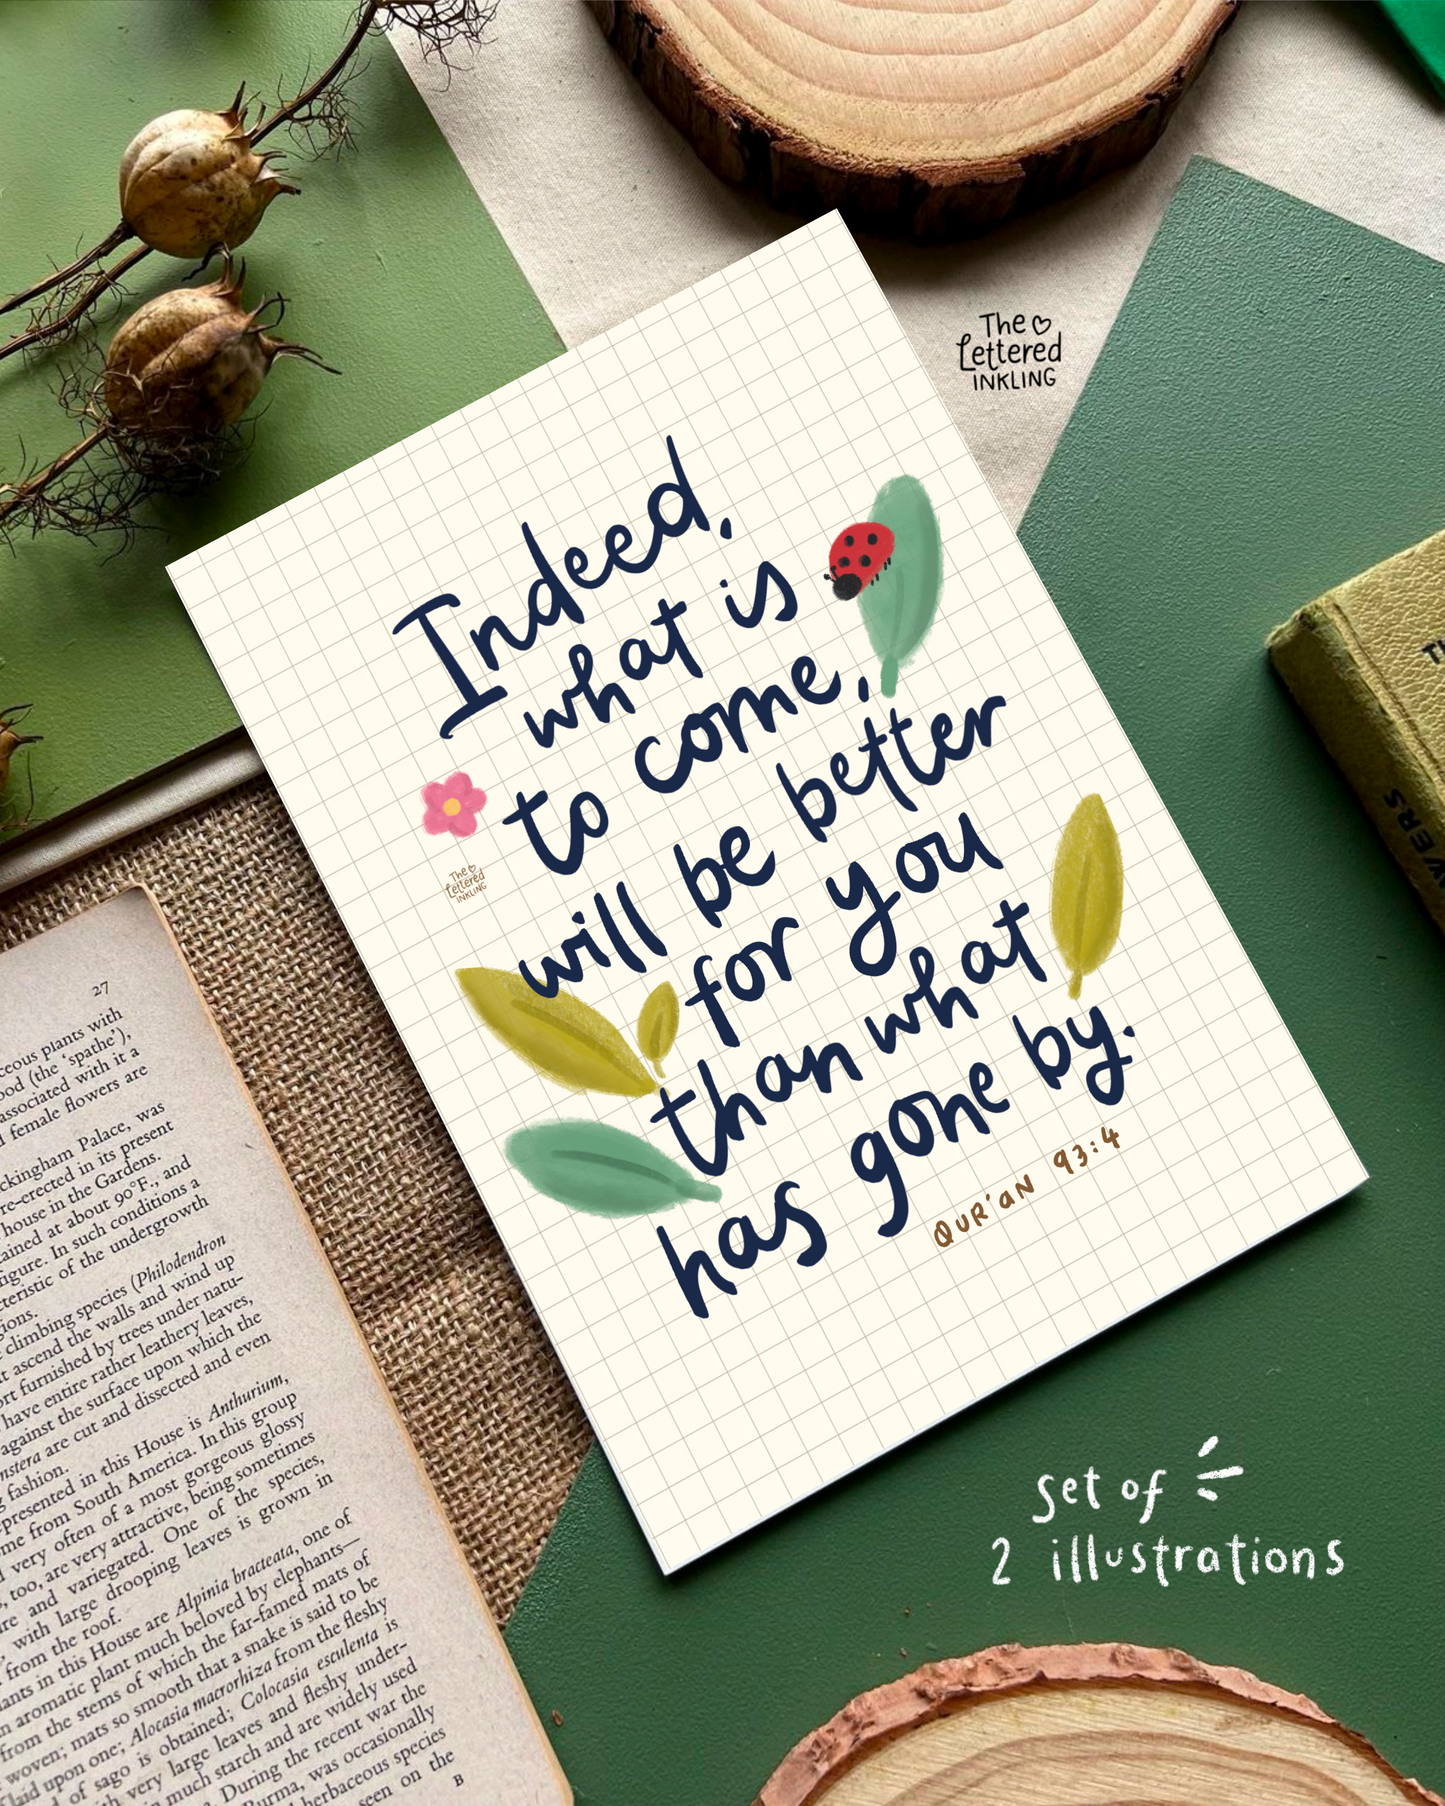 The
Lettered
INKLING
Indeed,
what is
to come,
will be better
for you
than what
has gone by.
QUR'AN 93:4
The
Lettered
INKLING
set of
2 illustrations
27
ceous plants with
(the 'spathe'),
associated with it a
female flowers are
Palace, was
re-erected in its present
house in the Gardens.
at about 90°F., and
figure. In such conditions a
of the undergrowth
climbing species (Philodendron
ascend the walls and wind up
furnished by trees under natu-
have entire rather leathery leaves,
against the surface upon which the
are cut and dissected and even
fashion.
in this House is Anthurium,
from South America. In this group
very often of a most gorgeous glossy
too, are very attractive, being sometimes
and variegated. One of the species,
with large drooping leaves is grown in
from the roof.
in this House are Alpinia bracteata, one of
aromatic plant much beloved by elephants—
from the stems of which the far-famed mats of
woven; mats so smooth that a snake is said to be
upon one; Alocasia macrorhiza from the fleshy
of sago is obtained; Colocasia esculenta is
very large leaves and fleshy under-
much starch and are widely used
During the recent war the
was occasionally
species
seen on the
B